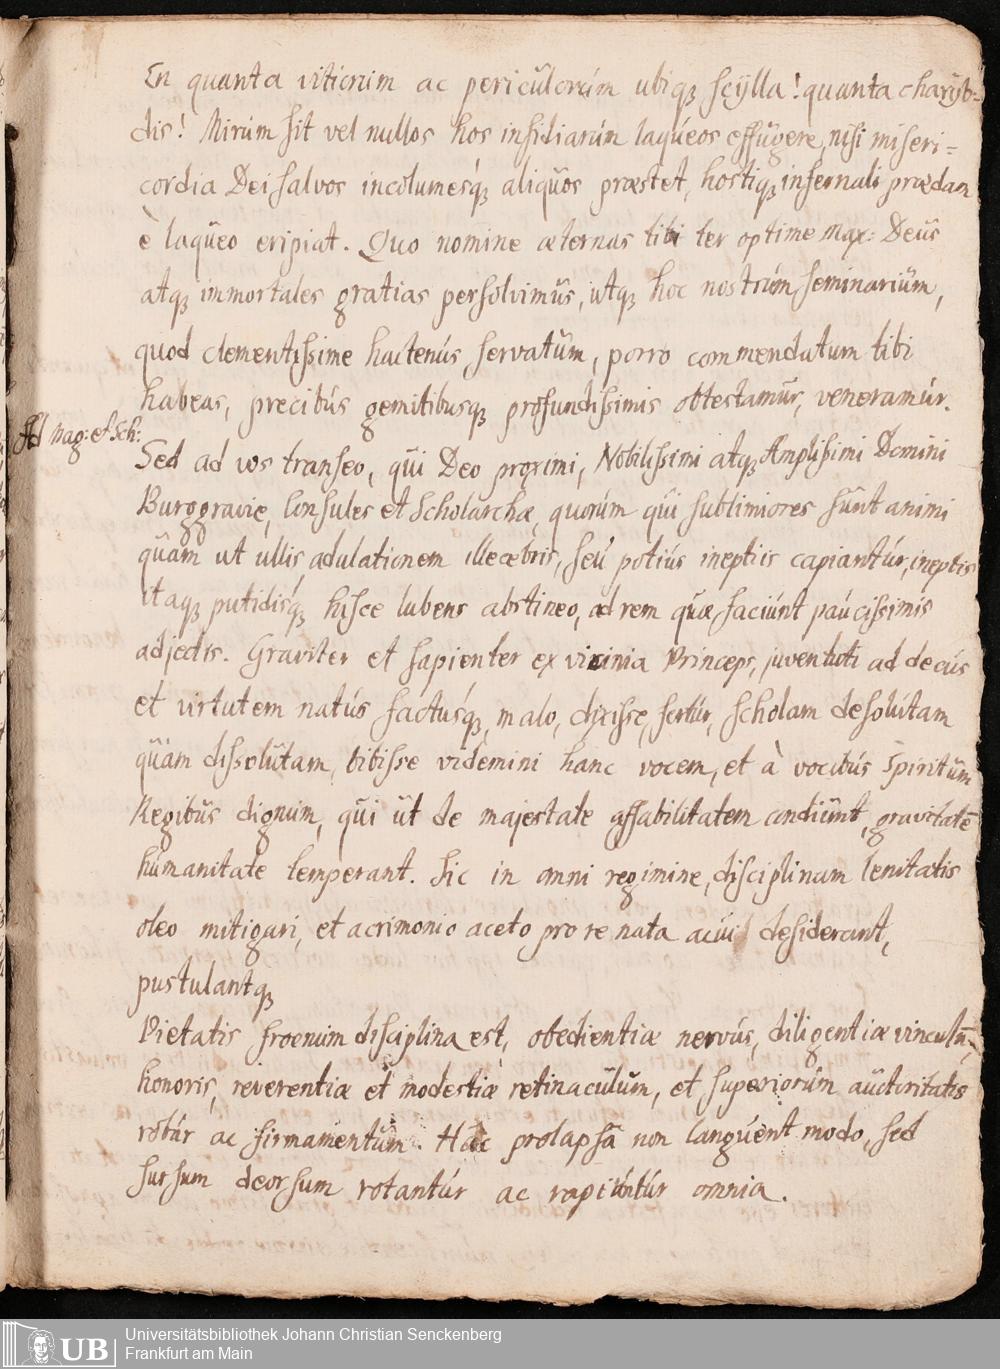 En quanta vitiorum ac periculorúm ubiqꝫ scylla! quanta charyb-
dis! Mirúm sit vel nullos hos insidiarúm laqúeos effúgere, nisi miseri=
cordia Dei salvos incolumesq́ꝫ aliquos præstet, hostiqꝫ infernali prædam
è laqŭeo eripiat. Quo nomine æternas tibi ter optime Max: Deŭs
atqꝫ immortales gratias persolvimŭs, utqꝫ hoc nostrúm seminariŭm,
quod clementissime hactenŭs servatŭm, porro commendatum tibi
habeas, precibŭs gemitibusqꝫ profundissimis obtestamŭr, veneramŭr.
Ad Mag: et Sch:
Sed ad vos transeo, qui Deo proximi, Nobilissimi atqꝫ Amplissimi Domini
Burggravie, Consules et Scholarchæ, quorúm qui sublimiores sŭnt animi
qŭam ut ŭllis adulationem illecebris, seŭ potiŭs ineptiis capiantŭr, ineptis
itaqꝫ putidisq́ꝫ hisce lubens abstineo, ad rem quæ faciŭnt paŭcissimis
adjectis. Graviter et sapienter ex vicinia Princeps, juventuti ad decŭs
et virtutem natŭs factusq́ꝫ, malo, dixisse, fertŭr, scholam desolŭtam
qŭam dissolŭtam, bibisse videmini hanc vocem, et à vocibŭs spiritŭm
Regibŭs dignum, qui ŭt de majestate affabilitatem condiŭnt, gravitatē
hŭmanitate temperant. Sic in omni regimine, disciplinam lenitatis
oleo mitigari, et acrimoniæ aceto pro re nata acui desiderant,
pustulantqꝫ
Pietatis froenum disciplina est, obedientiæ nervŭs, diligentiæ vinculū,
honoris, reverentiæ et modestiæ retinacŭlum, et superiorŭm aŭctoritatis
robŭr ac firmamentŭm. Hac prolapsâ non langŭent modo, sed
sursum deorsum rotantŭr ac rapiŭntŭr omnia.
Universitätsbibliothek Johann Christian Senckenberg
Frankfurt am Main
UB